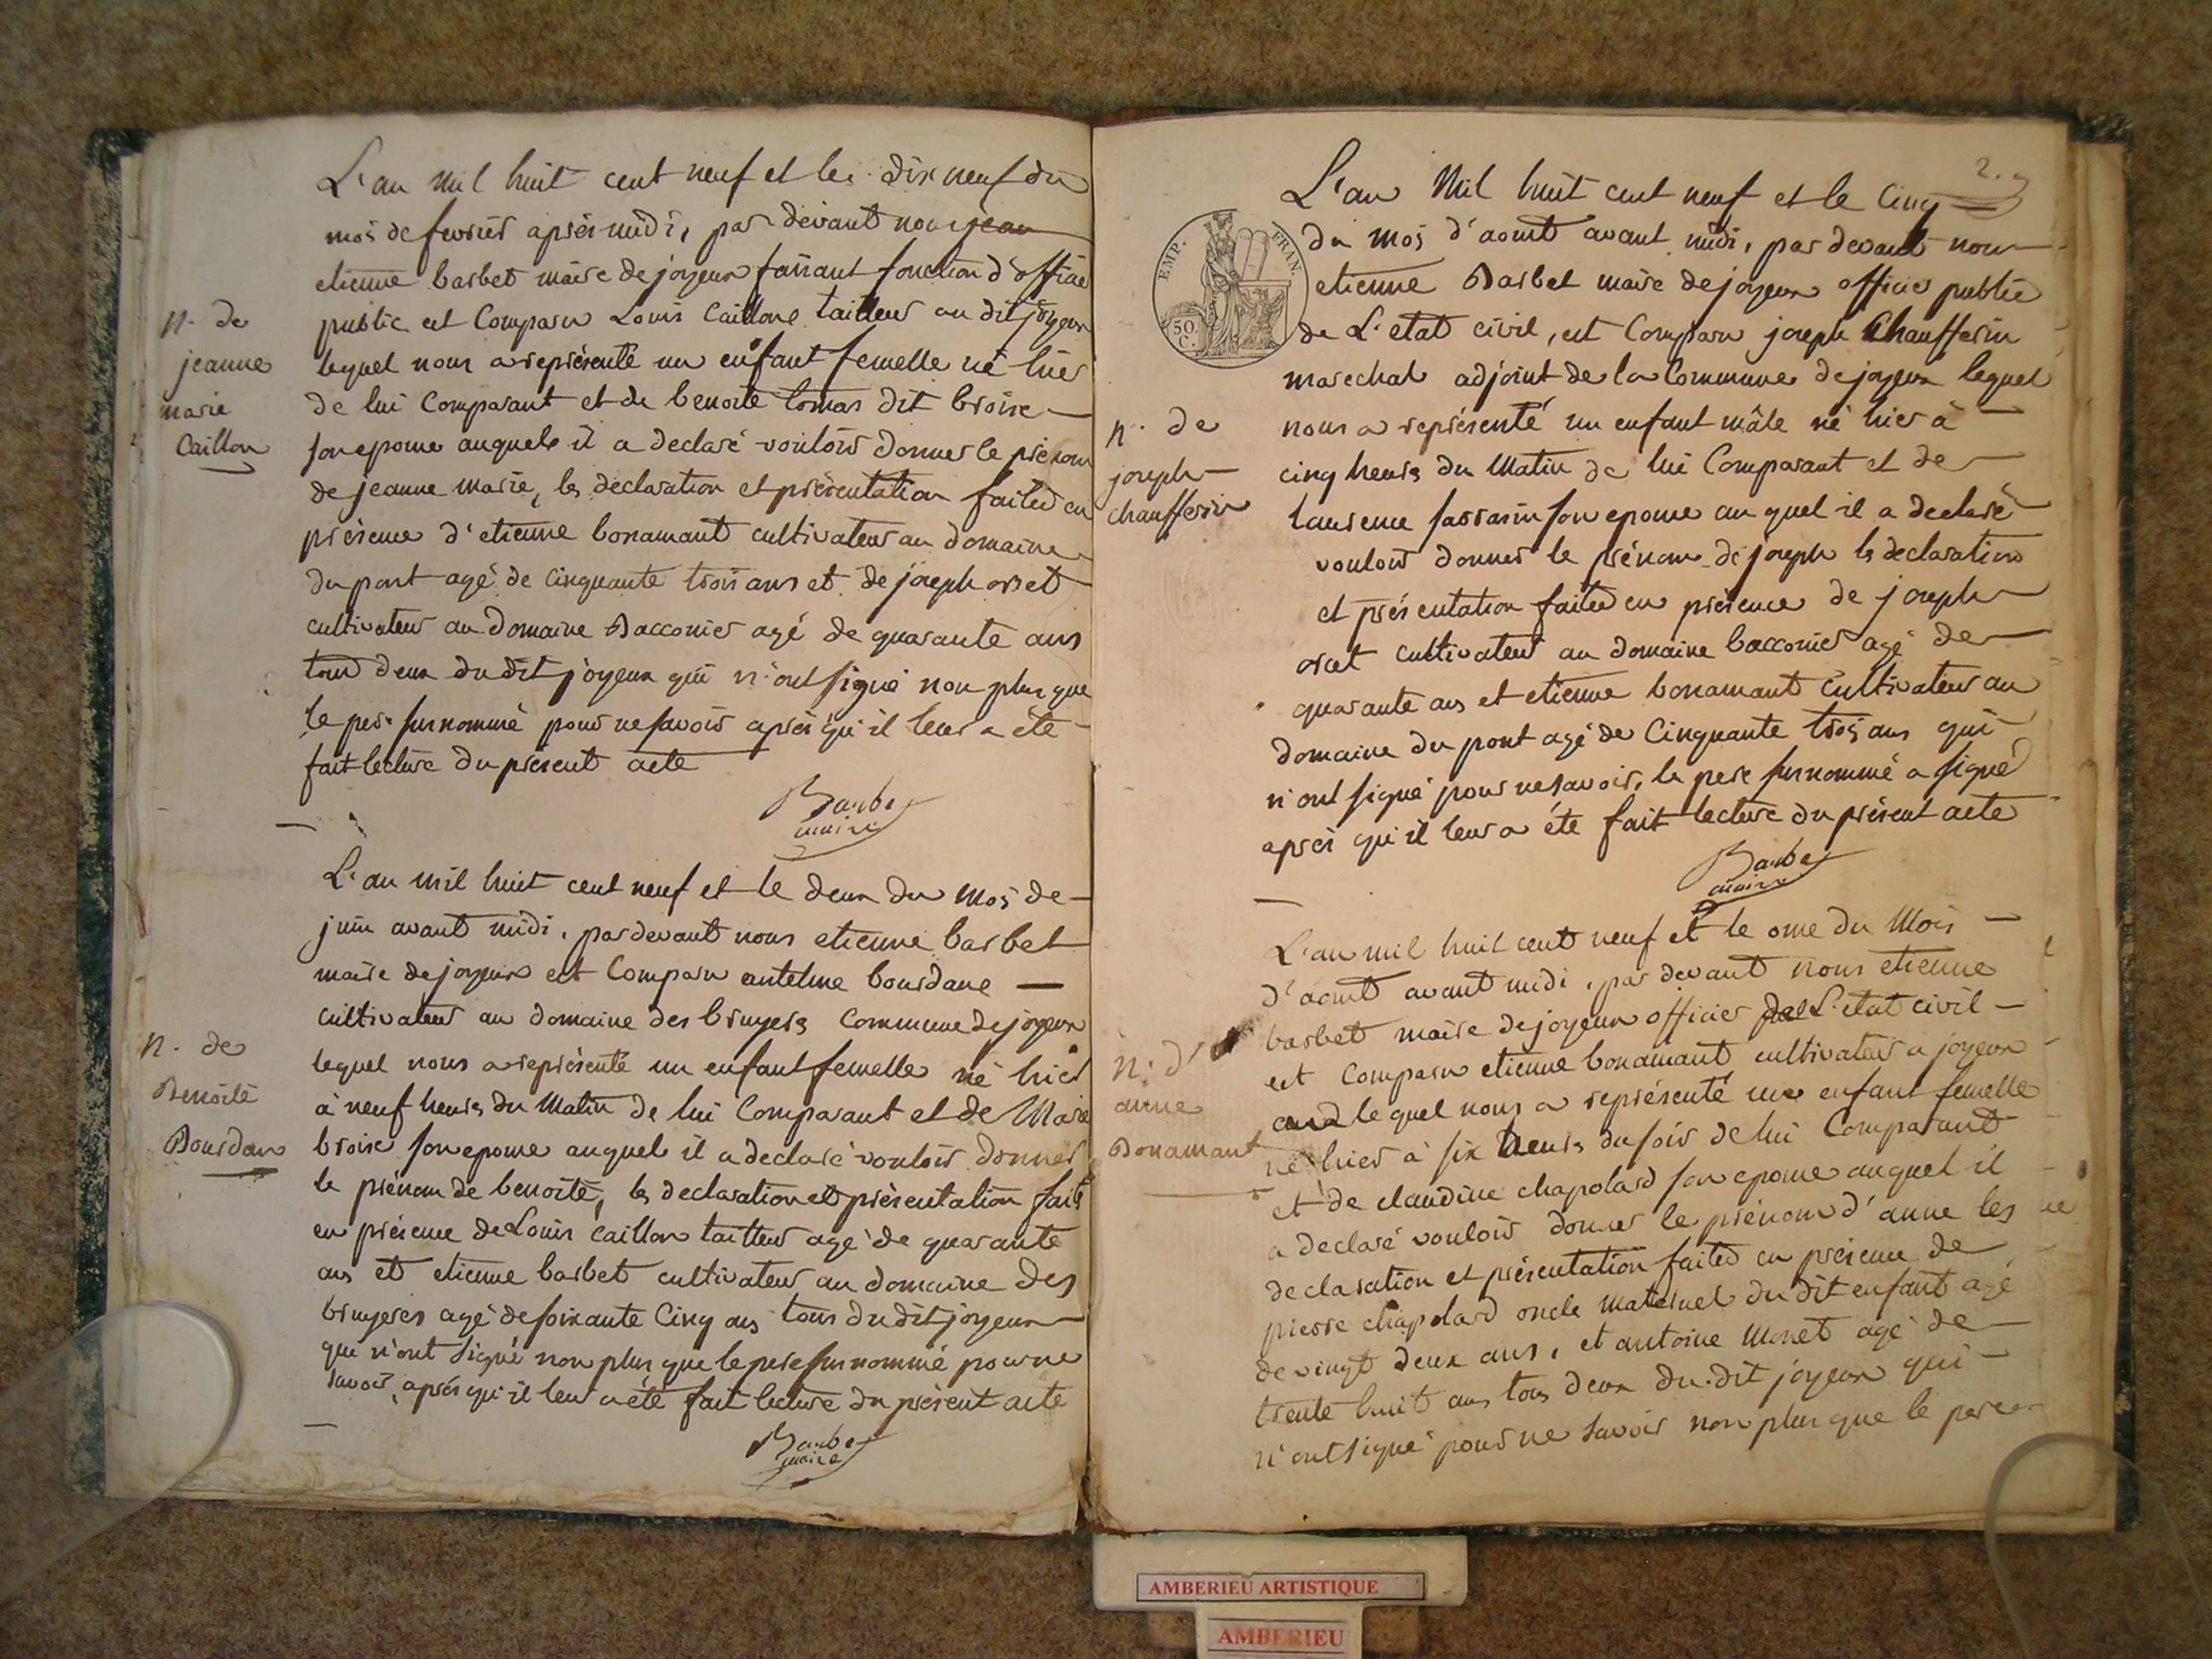 L'an mil huit cent neuf et le dix neuf du
mois de fevrier après midi, par devant nous jean
etienne barbet maire de joyeux faisant fonction d'officier
public est Comparu Louis Caillon tailleur au dit joyeux
n. de
jeanne
marie
Caillon
lequel nous a représenté un enfant femelle né hier
de lui Comparant et de benoite tomas dit broise
son epouse auquele il a declaré vouloir donner le prénom
de jeanne marie, les declaration et présentation faites en
présence d'etienne bonamant cultivateur au domaine
du pont agé de cinquante trois ans et de joseph orset
cultivateur au domaine Bacconier agé de quarante ans
tous deux du dit joyeux qui n'ont signé non plus que
le pere surnommé pour ne savoir après qu'il leur a été
fait lecture du présent acte
Barbet
maire
L'an mil huit cent neuf et le deux du mois de
juin avant midi, par devant nous etienne barbet
maire de joyeux est Comparu antelme bourdane
cultivateur au domaine des bruyers Commune de joyeux
n. de
Benoite
Bourdan
lequel nous a représenté un enfant femelle né hier
à neuf heures du matin de lui Comparant et de Marie
broise son epouse auquele il a declaré vouloir donner
le prénom de benoite, les declaration et présentation faite
en présence de Louis caillon tailleur agé de quarante
ans et etienne barbet cultivateur au domaine des
bruyeres agé de soixante Cinq ans tous du dit joyeux
qui n'ont signé non plus que le pere surnommé pour ne
savoir, après qu'il leur a été fait lecture du présent acte
Barbet
maire
2.
EMP. FRAN.
50.
C.
L'an Mil huit cent neuf et le cinq
du mois d'aout avant midi, par devant nous
etienne Barbet maire de joyeux officier public
de L'etat civil, est Comparu joseph Chaufferin
marechal adjoint de la Commune de joyeux lequel
n. de
joseph
chaufferin
nous a représenté un enfant mâle né hier à
cinq heures du Matin de lui Comparant et de
laurence sarrasin son epouse au quel il a declaré
vouloir donner le prénom de joseph les declaration
et présentation faites en présence de joseph
orset cultivateur au domaine bacconier agé de
quarante ans et etienne bonamant cultivateur au
domaine du pont agé de Cinquante trois ans qui
n'ont signé pour ne savoir, le pere surnommé a signé
après qu'il leur a été fait lecture du présent acte
Barbet
maire
L'an mil huit cent neuf et le onze du Mois
d'aout avant midi, par devant nous etienne
barbet maire de joyeux officier de L'etat civil
n. d'
anne
Bonamant
est Comparu etienne bonamant cultivateur a joyeux
lequel nous a représenté une enfant femelle
né hier à six heures du soir de lui Comparant
et de claudine chapolard son epouse auquel il
a declaré vouloir donner le prénom d'anne les
declaration et présentation faites en présence de
pierre chapolard oncle maternel du dit enfant agé
de vingt deux ans, et antoine Monet agé de
trente huit ans tous deux du dit joyeux qui
n'ont signé pour ne savoir non plus que le pere
AMBERIEU ARTISTIQUE
AMBERIEU